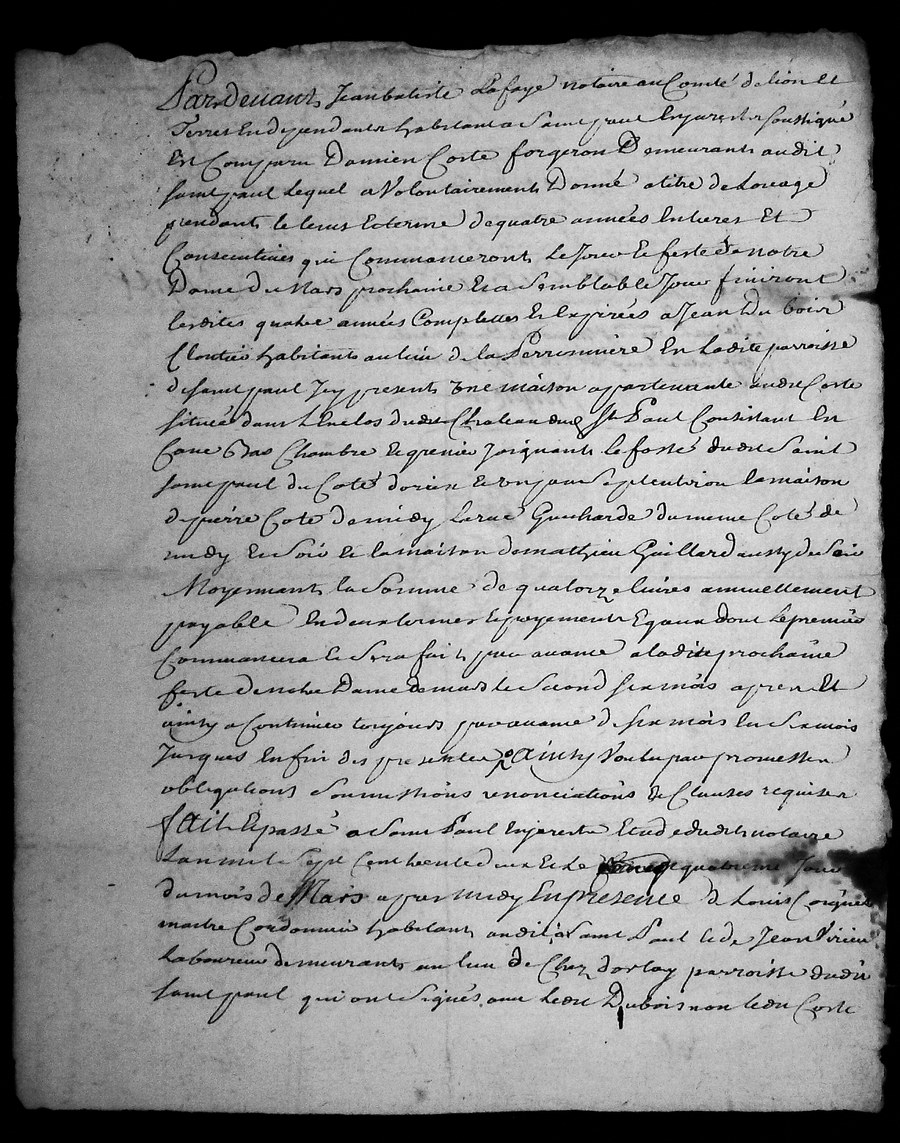 Par devant Jean batiste Lafaye notaire au Comté de lion et
Terres En dependantes habitant a Saint paul En jarest soussigné
Est Comparu Damien Coste forgeron Demeurant audit
saint paul Lequel a Volontairement Donné a titre de Loüage
pendant le tems et terme de quatre années Entieres Et
Consecutives qui Commanceront Le Jour & feste de notre
Dame du Mars prochaine Et a Semblable Jour finiront
lesdites quatre années Complettes Et Expirées a Jean Du bois
Cloutier habitant au lieu de la Perronniere En Ladite parroisse
de saint paul Icy present Une maison apartenante audit Coste
située dans L'Enclos dudit Chateau dud St Paul Consistant En
Cave Bas Chambre et grenier Joignant le fossé dudit Saint
saint paul du Coté d'orient & septentrion la maison
de pierre Coté de midy La rue Gucharde du meme Coté de
midy Et Soir & la maison de mathieu Gaillard aussy de Soir
Moyennant la Somme de quatorze livres annuellement
payable En deux termes & payements Egaux dont Le premier
Commancera & Sera fait par avance a ladite prochaine
feste de notre Dame de mars le Second six mois apres Et
ainsy a Continuer toujours par avance de six mois En Six mois
Jusques En fin des presentes Ainsy Voulu par promesses
obligations Soumissions renonciations & Clauses requises
fait & passé a Saint Paul En jarest Etude dudit notaire
L'an mil Sept Cent trente deux Et Le quatrieme Jour
du mois de Mars apres midy En presence de Louis
maitre Cordonnier habitant audit Saint Paul & de Jean Virieu
Laboureur demeurant au lieu de Chez dorlay parroisse dudit
saint paul qui ont signés avec ledit Dubois non ledit Coste